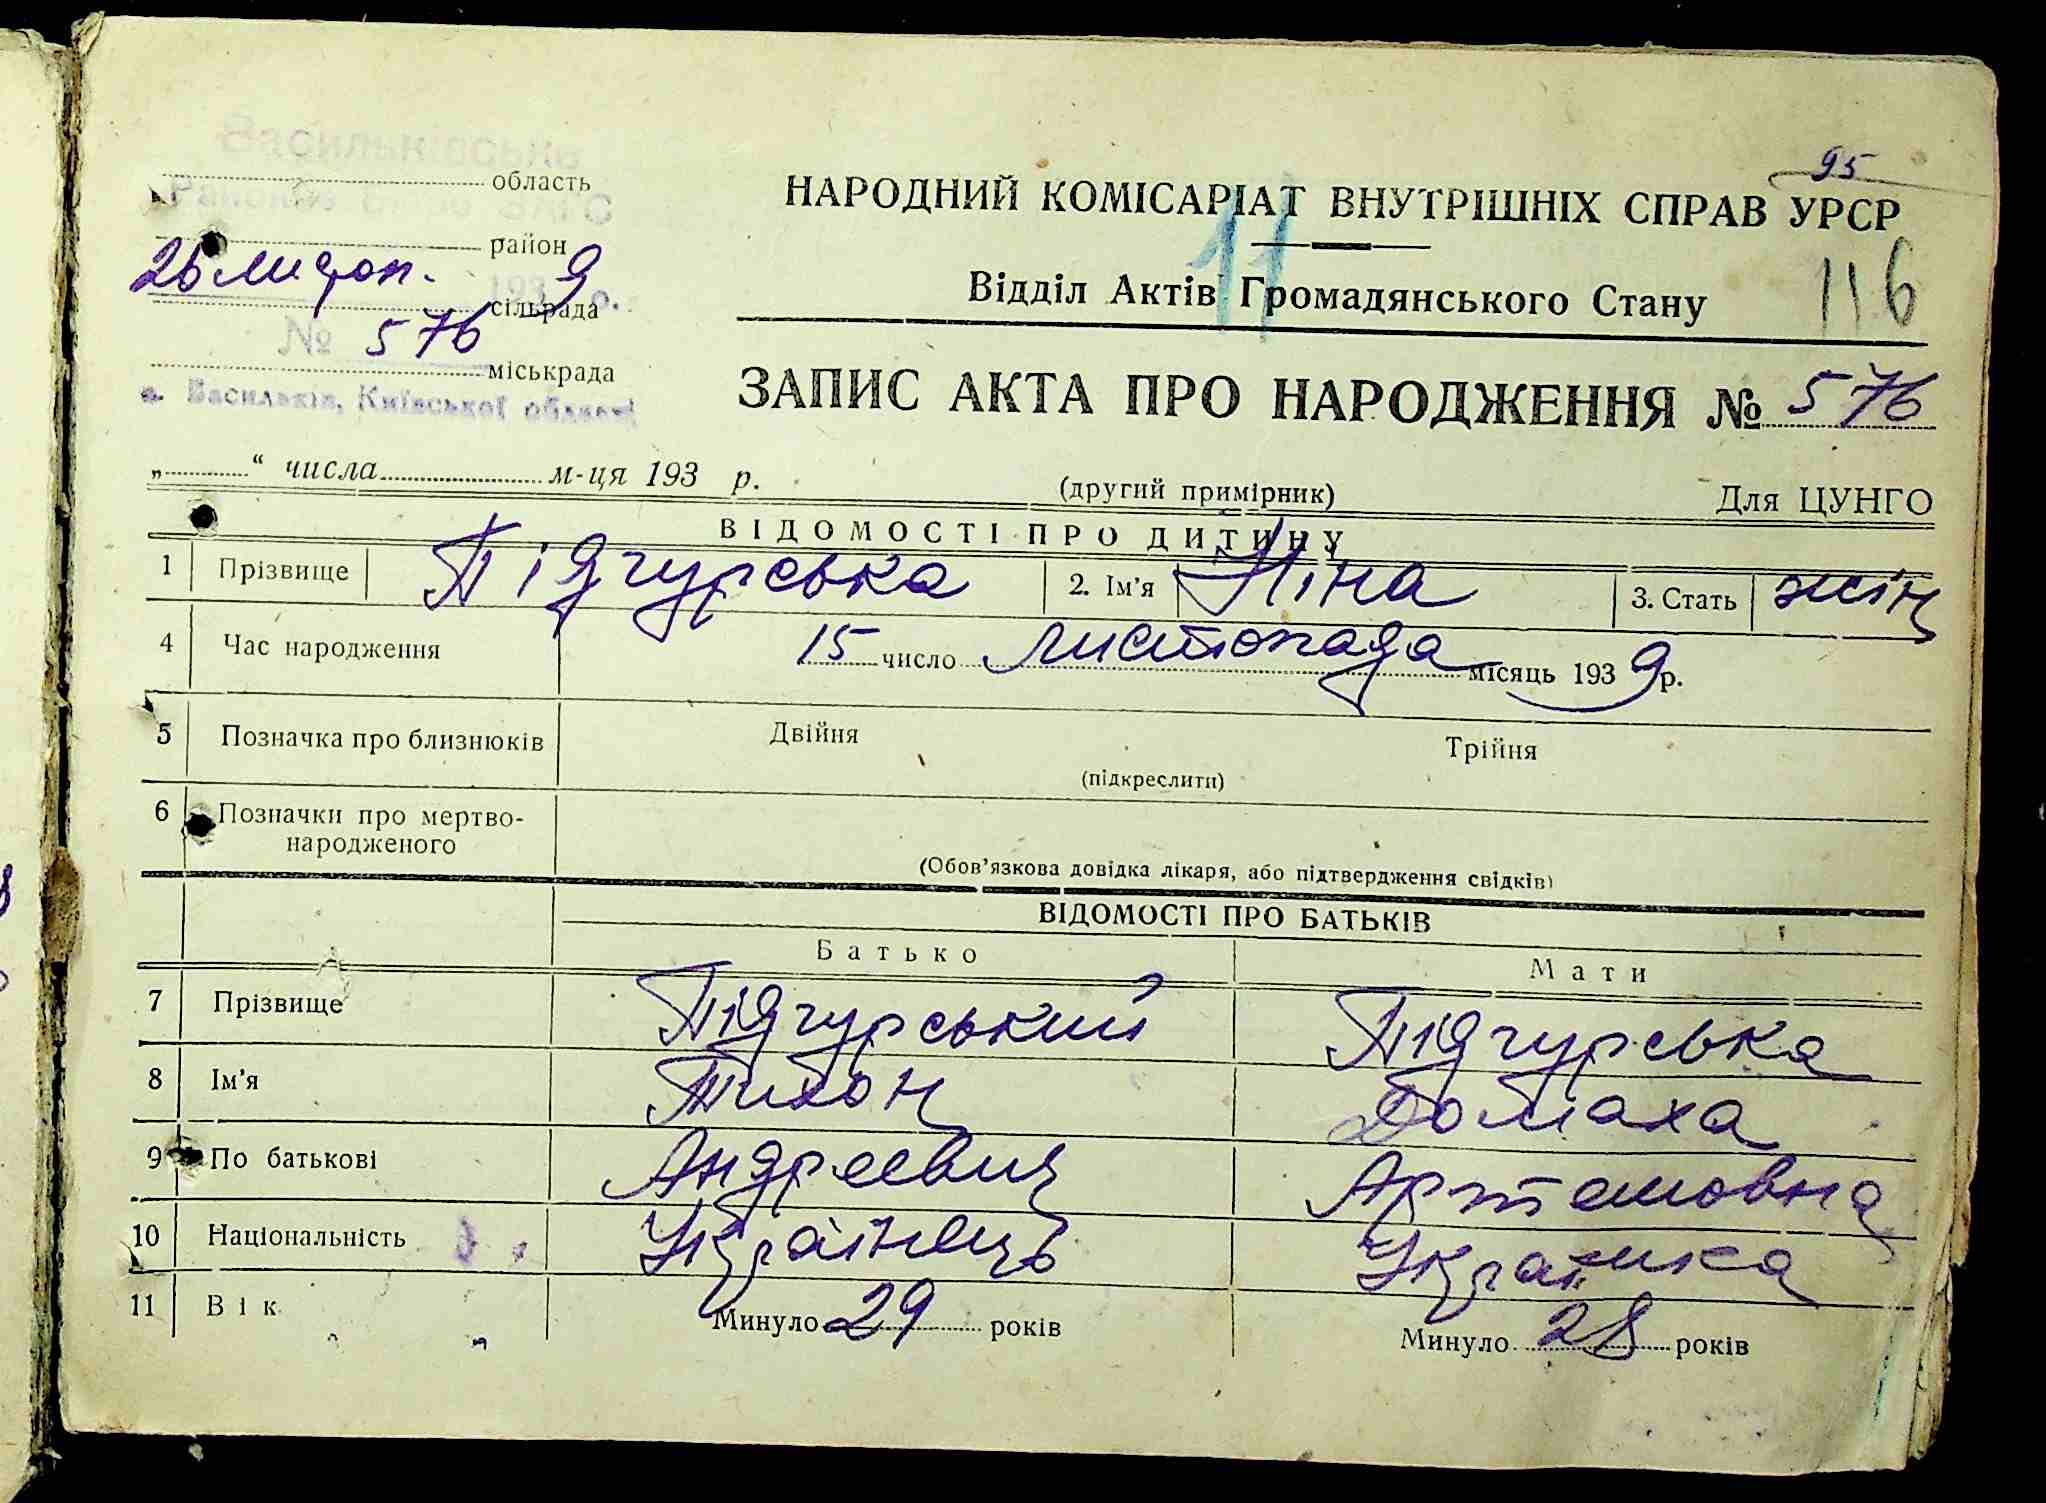 95
Васильківське
Районне Бюро ЗАГС
область
район
26 листоп. 1939 р.
сільрада
№ 576
міськрада
м. Васильків, Київської області
НАРОДНИЙ КОМІСАРІАТ ВНУТРІШНІХ СПРАВ УРСР
11
Відділ Актів Громадянського Стану
116
ЗАПИС АКТА ПРО НАРОДЖЕННЯ № 576
„ “ числа м-ця 193 р.
(другий примірник)
Для ЦУНГО
ВІДОМОСТІ ПРО ДИТИНУ
1 Прізвище Підгурська 2. Ім’я Ніна 3. Стать жін
4 Час народження 15 число листопада місяць 1939 р.
5 Позначка про близнюків Двійня Трійня
(підкреслити)
6 Позначки про мертво-
народженого
(Обов’язкова довідка лікаря, або підтвердження свідків)
ВІДОМОСТІ ПРО БАТЬКІВ
Батько Мати
7 Прізвище Підгурський Підгурська
8 Ім’я Тихон Домаха
9 По батькові Андреевич Артемовна
10 Національність Українець Украінка
11 Вік Минуло 29 років Минуло 28 років